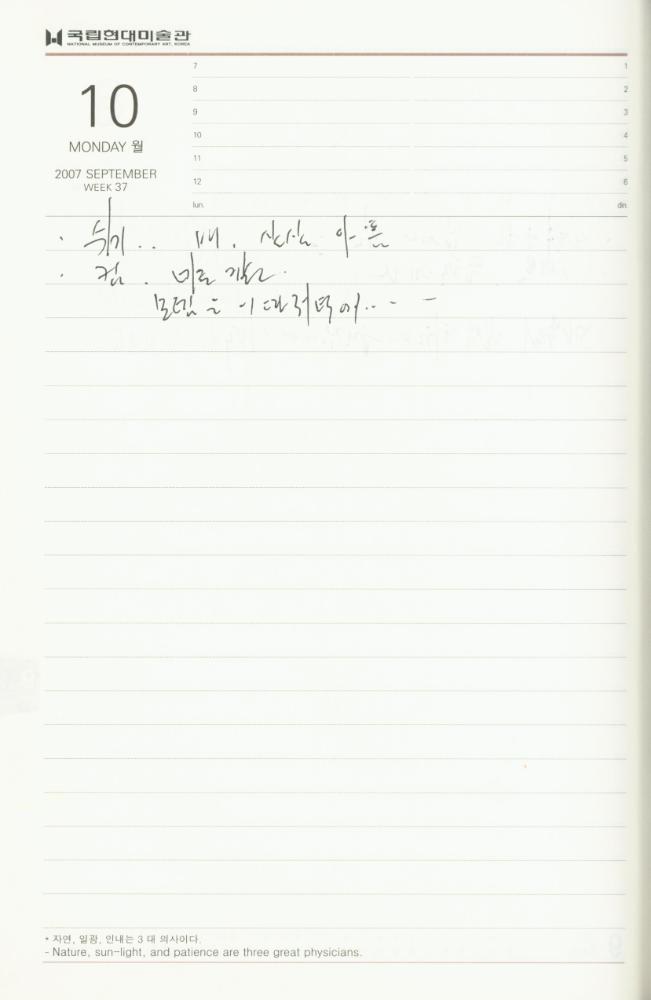 국립현대미술관
NATIONAL MUSEUM OF CONTEMPORARY ART, KOREA
10
MONDAY 월
2007 SEPTEMBER
WEEK 37
7 1
8 2
9 3
10 4
11 5
12 6
lun. din.
· 배. 살살 아픔
· 컴.
* 자연, 일광, 인내는 3 대 의사이다.
- Nature, sun-light, and patience are three great physicians.